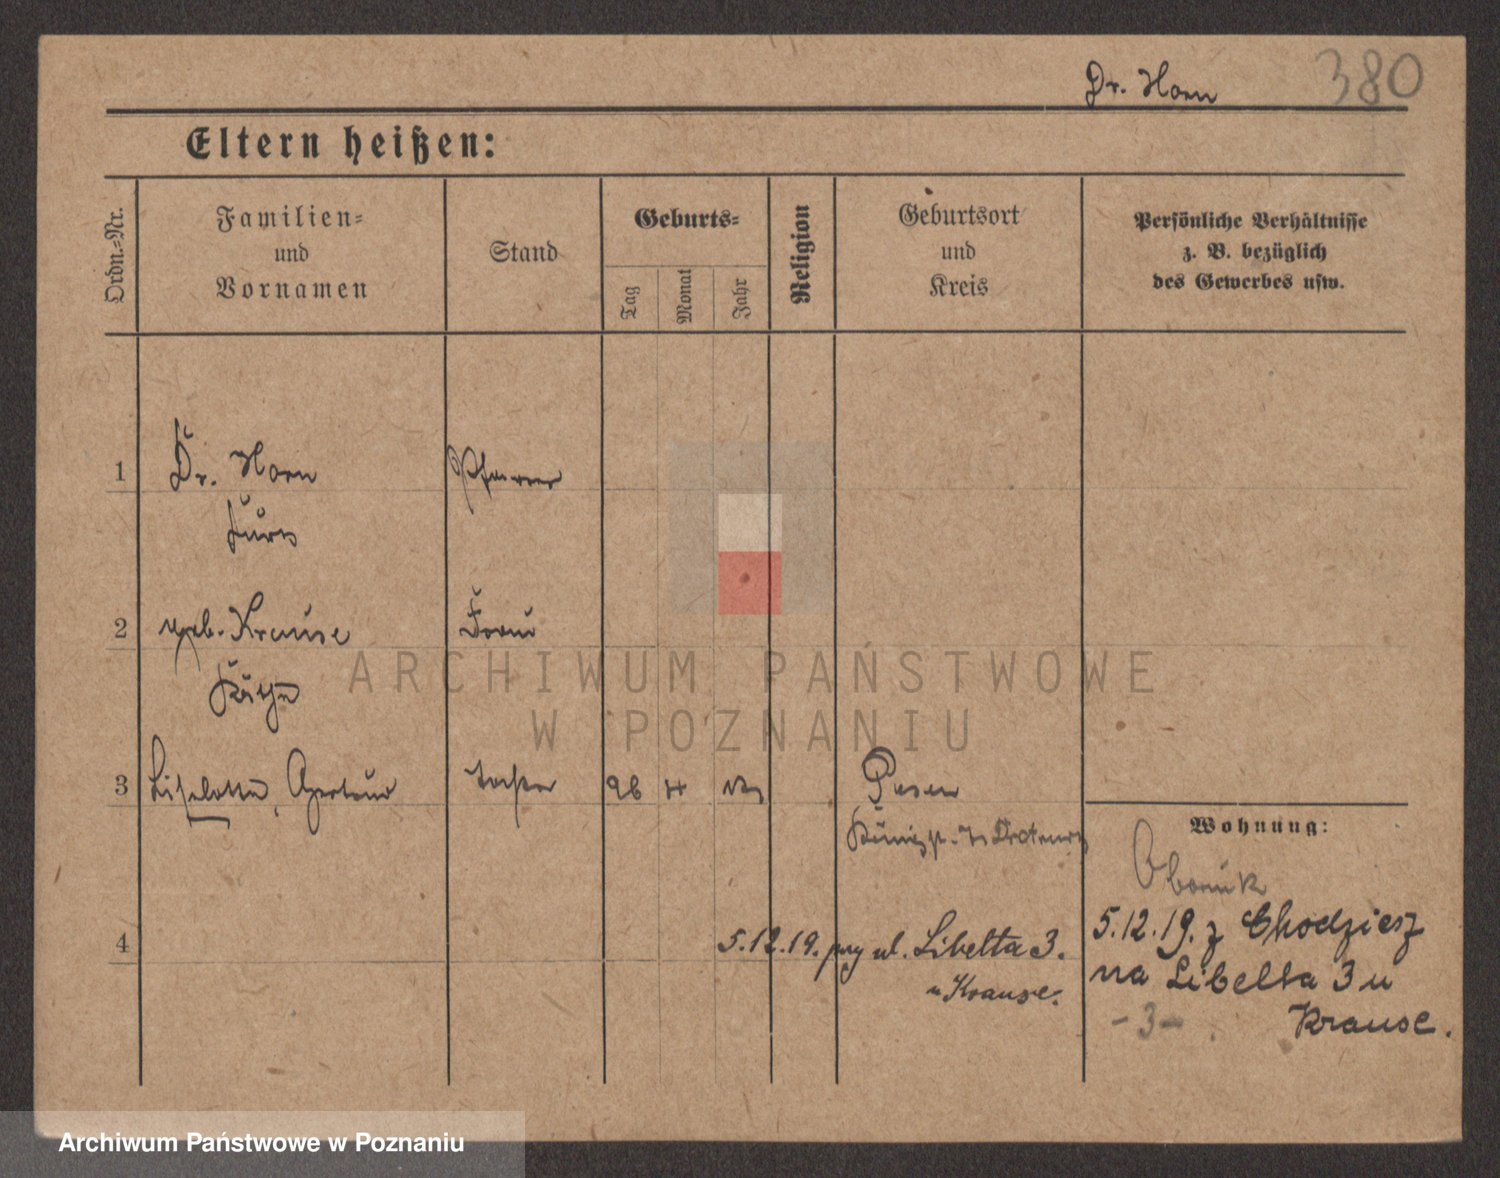 Dr. Horn 380
Eltern heißen:
Ordn.=Nr.
Familien=
und
Vornamen
Stand
Geburts=
Tag
Monat
Jahr
Religion
Geburtsort
und
Kreis
Persönliche Verhältnisse
z. B. bezüglich
des Gewerbes usw.
1 Dr. Horn Pfarrer
2 geb. Krause Frau
Käthe
3 Liselotte, Gertrud Tochter 26 4 Posen
Wohnung:
Obornik
4
5.12.19. z Chodzież
na Libelta 3 u
Krause.
5.12.19. przy ul. Libelta 3.
u Krause.
- 3 -
ARCHIWUM PAŃSTWOWE
W POZNANIU
Archiwum Państwowe w Poznaniu